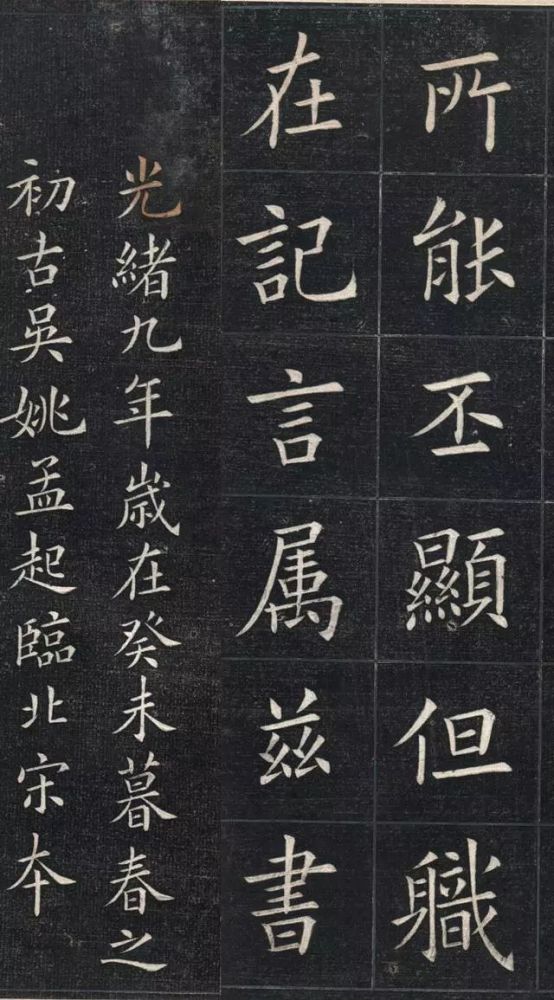 所能丕顯但職
在記言属兹書
光緒九年歲在癸未暮春之
初古吳姚孟起臨北宋本